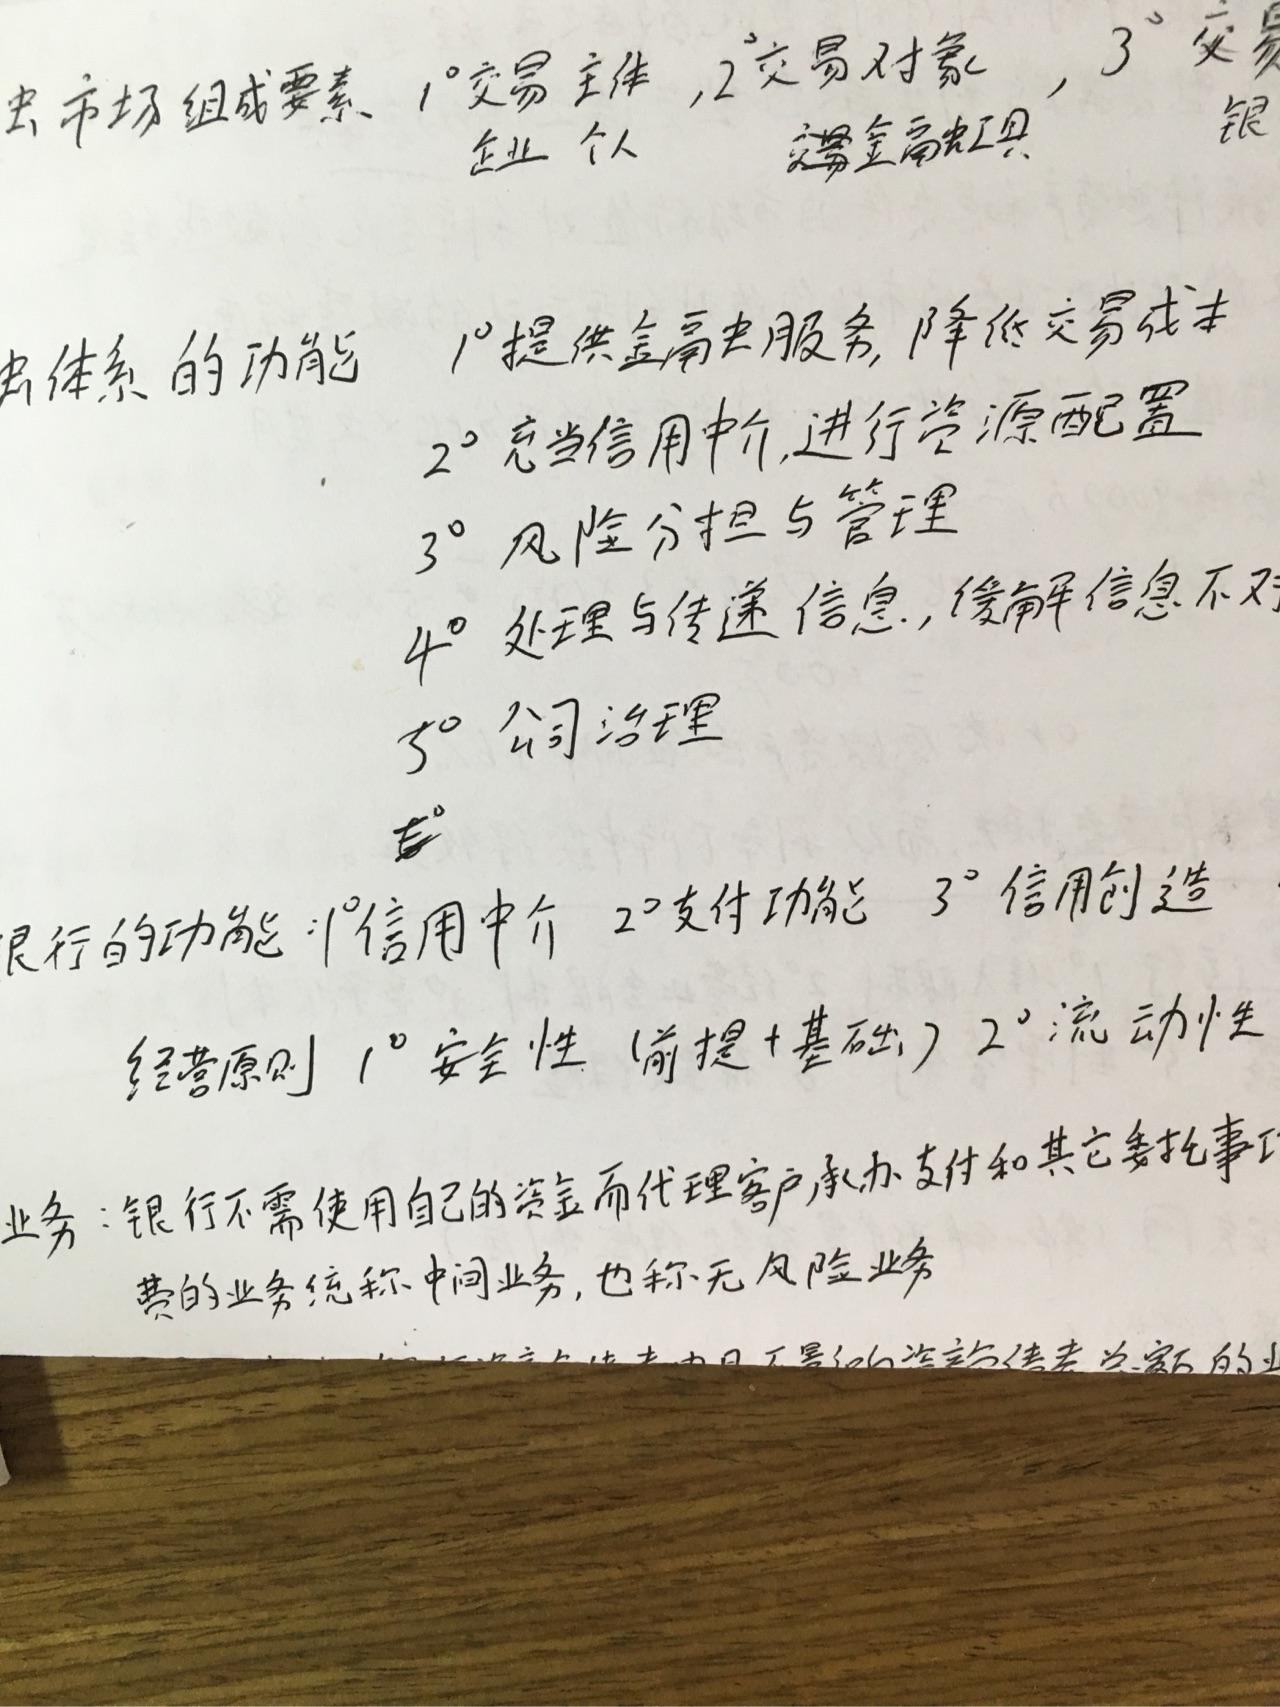 市场组成要素 1°交易主体 ,2°交易对象 , 3°交易
企业 个人 交易金融工具 银
体系的功能 1°提供金融服务,降低交易成本
2°充当信用中介,进行资源配置
3°风险分担与管理
4°处理与传递信息,缓解信息不对
5°公司治理
银行的功能:1°信用中介 2°支付功能 3°信用创造
经营原则 1°安全性(前提+基础) 2°流动性
业务:银行不需使用自己的资金而代理客户承办支付和其它委托事项
费的业务统称中间业务,也称无风险业务